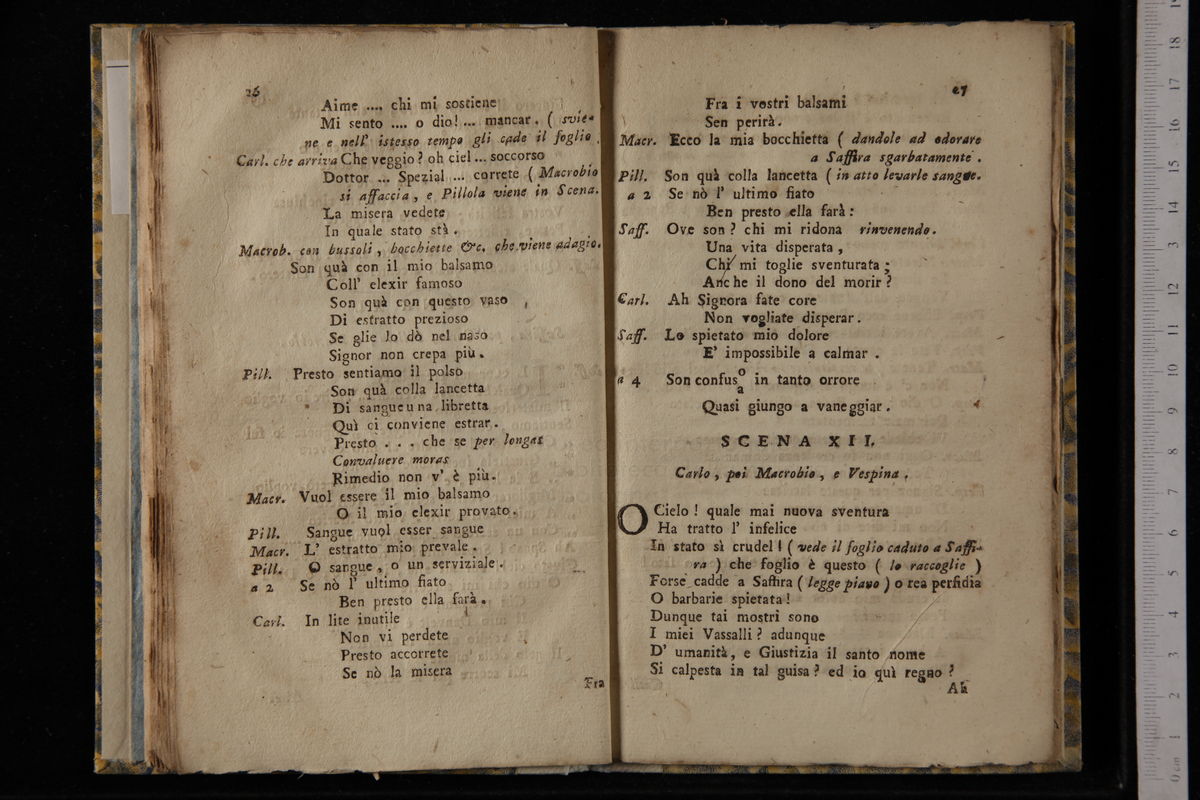 26
Aime .... chi mi sostiene
Mi sento .... o dio! ... mancar. ( svie-
ne e nell' istesso tempo gli cade il foglio.
Carl. che arriva Che veggio? oh ciel ... soccorso
Dottor ... Spezial ... correte ( Macrobio
si affaccia, e Pillola viene in Scena.
La misera vedete
In quale stato stà.
Macrob. con bussoli, bocchiette &c. che viene adagio.
Son quà con il mio balsamo
Coll' elexir famoso
Son quà con questo vaso
Di estratto prezioso
Se glie lo dò nel naso
Signor non crepa più.
Pill. Presto sentiamo il polso
Son quà colla lancetta
Di sangue una libretta
Quì ci conviene estrar.
Presto . . . che se per longas
Convaluere moras
Rimedio non v' è più.
Macr. Vuol essere il mio balsamo
O il mio elexir provato.
Pill. Sangue vuol esser sangue
Macr. L' estratto mio prevale.
Pill. O sangue, o un serviziale.
a 2 Se nò l' ultimo fiato
Ben presto ella farà.
Carl. In lite inutile
Non vi perdete
Presto accorrete
Se nò la misera
Fra
27
Fra i vostri balsami
Sen perirà.
Macr. Ecco la mia bocchietta ( dandole ad odorare
a Saffira sgarbatamente.
Pill. Son quà colla lancetta ( in atto levarle sangue.
a 2 Se nò l' ultimo fiato
Ben presto ella farà:
Saff. Ove son? chi mi ridona rinvenendo.
Una vita disperata,
Chi mi toglie sventurata;
Anche il dono del morir?
Carl. Ah Signora fate core
Non vogliate disperar.
Saff. Lo spietato mio dolore
E' impossibile a calmar.
a 4 Son confus o/a in tanto orrore
Quasi giungo a vaneggiar.
SCENA XII.
Carlo, poi Macrobio, e Vespina.
O Cielo! quale mai nuova sventura
Ha tratto l' infelice
In stato sì crudel! ( vede il foglio caduto a Saffi-
ra ) che foglio è questo ( lo raccoglie )
Forse cadde a Saffira ( legge piano ) o rea perfidia
O barbarie spietata!
Dunque tai mostri sono
I miei Vassalli? adunque
D' umanità, e Giustizia il santo nome
Si calpesta in tal guisa? ed io quì regno?
Ah